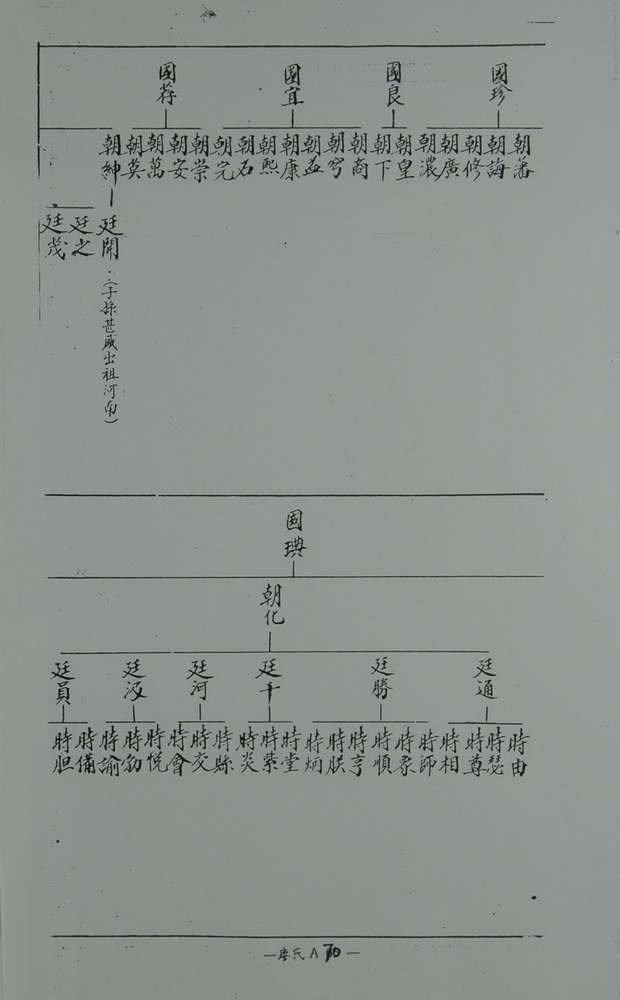 國珍
國良
國宜
國荐
朝藩
朝誨
朝修
朝廣
朝濃
朝皇
朝下
朝商
朝穹
朝益
朝康
朝熙
朝石
朝完
朝崇
朝安
朝萬
朝莫
朝紳
廷開
廷之
廷茂
(子孫甚盛出祖河南)
國琪
朝化
廷通
廷勝
廷千
廷河
廷汲
廷員
時由
時瑟
時尊
時相
時師
時豸
時順
時亨
時朕
時炳
時堂
時榮
時炎
時縣
時交
時會
時悅
時勿
時諭
時備
時胆
—廖氏 A 30—